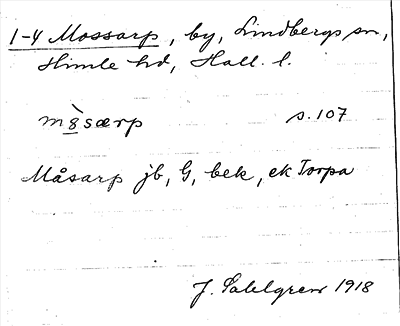 1-4 Mossarp, by, Lindbergs sn,
Himle hd, Hall. l.
m8̀særp s. 107
Måsarp jb, G, bek, ek Torpa
J. Sahlgren 1918